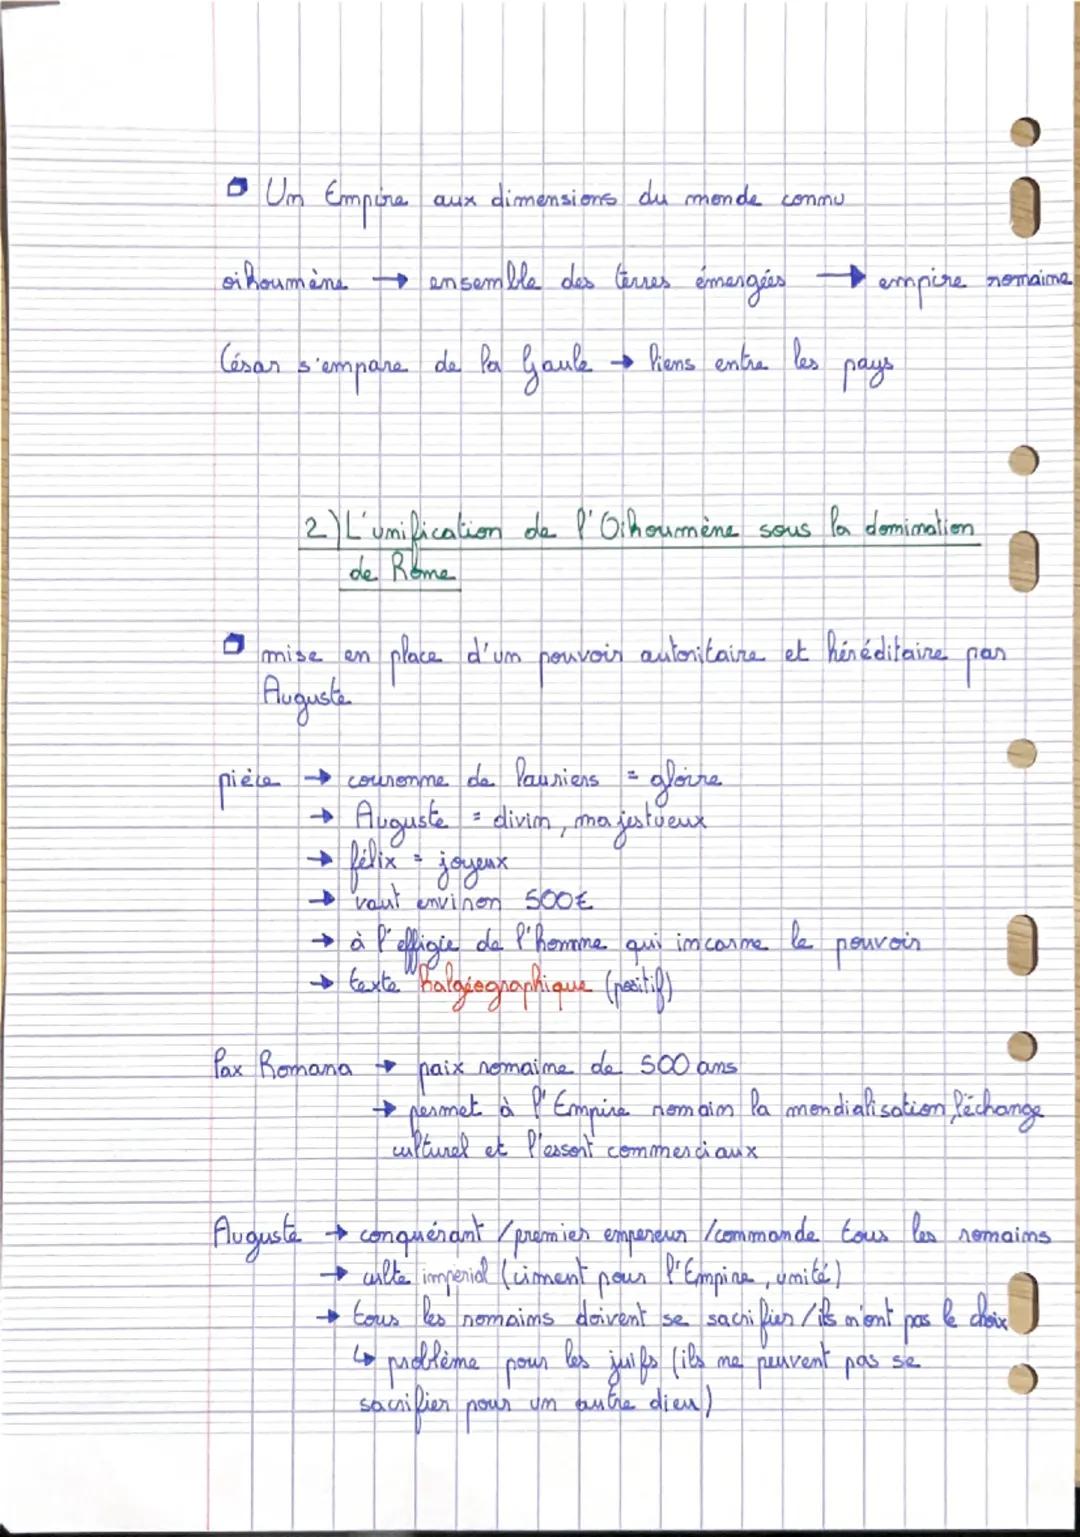 Un Empire aux dimensions du monde connu
oikoumène → ensemble des terres émergées → empire romaine
César s'empare de la Gaule → liens entre les pays
2) L'unification de l'Oikoumène sous la domination
de Rome
mise en place d'un pouvoir autoritaire et héréditaire par
Auguste
pièce → couronne de lauriers = gloire
→ Auguste = divin, majestueux
→ félix = joyeux
→ vaut environ 500€
→ à l'effigie de l'homme qui incarne le pouvoir
→ texte "halgiographique (positif)
Pax Romana → paix romaine de 500 ans
→ permet à l'Empire romain la mondialisation, l'échange
culturel et l'essort commerciaux
Auguste → conquérant / premier empereur / commande tous les romains
→ culte impérial (ciment pour l'Empire, unité)
→ tous les romains doivent se sacrifier / ils n'ont pas le choix
↳ problème pour les juifs (ils ne peuvent pas se
sacrifier pour un autre dieu)